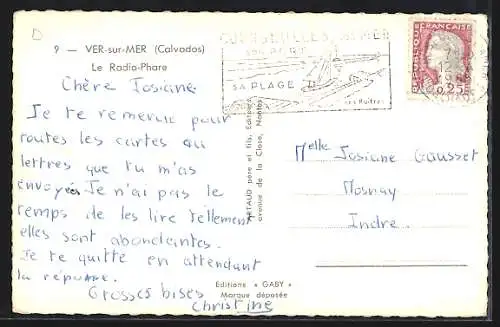 D
9 — VER-sur-MER (Calvados)
Le Radio-Phare
Chère Josiane
Je te remercie pour
toutes les cartes ou
lettres que tu m'as
envoyée Je n'ai pas le
temps de les lire tellement
elles sont abondantes.
Je te quitte en attendant
la réponse.
Grosses bises
Christine
ARTAUD père et fils, Editeurs
avenue de la Close, Nantes
Editions « GABY »
Marque déposée
COURSEULLES, S/MER
SON PORT
SA PLAGE
ses Huîtres
REPUBLIQUE FRANÇAISE
0,25
Melle Josiane Gausset
Mosnay
Indre.